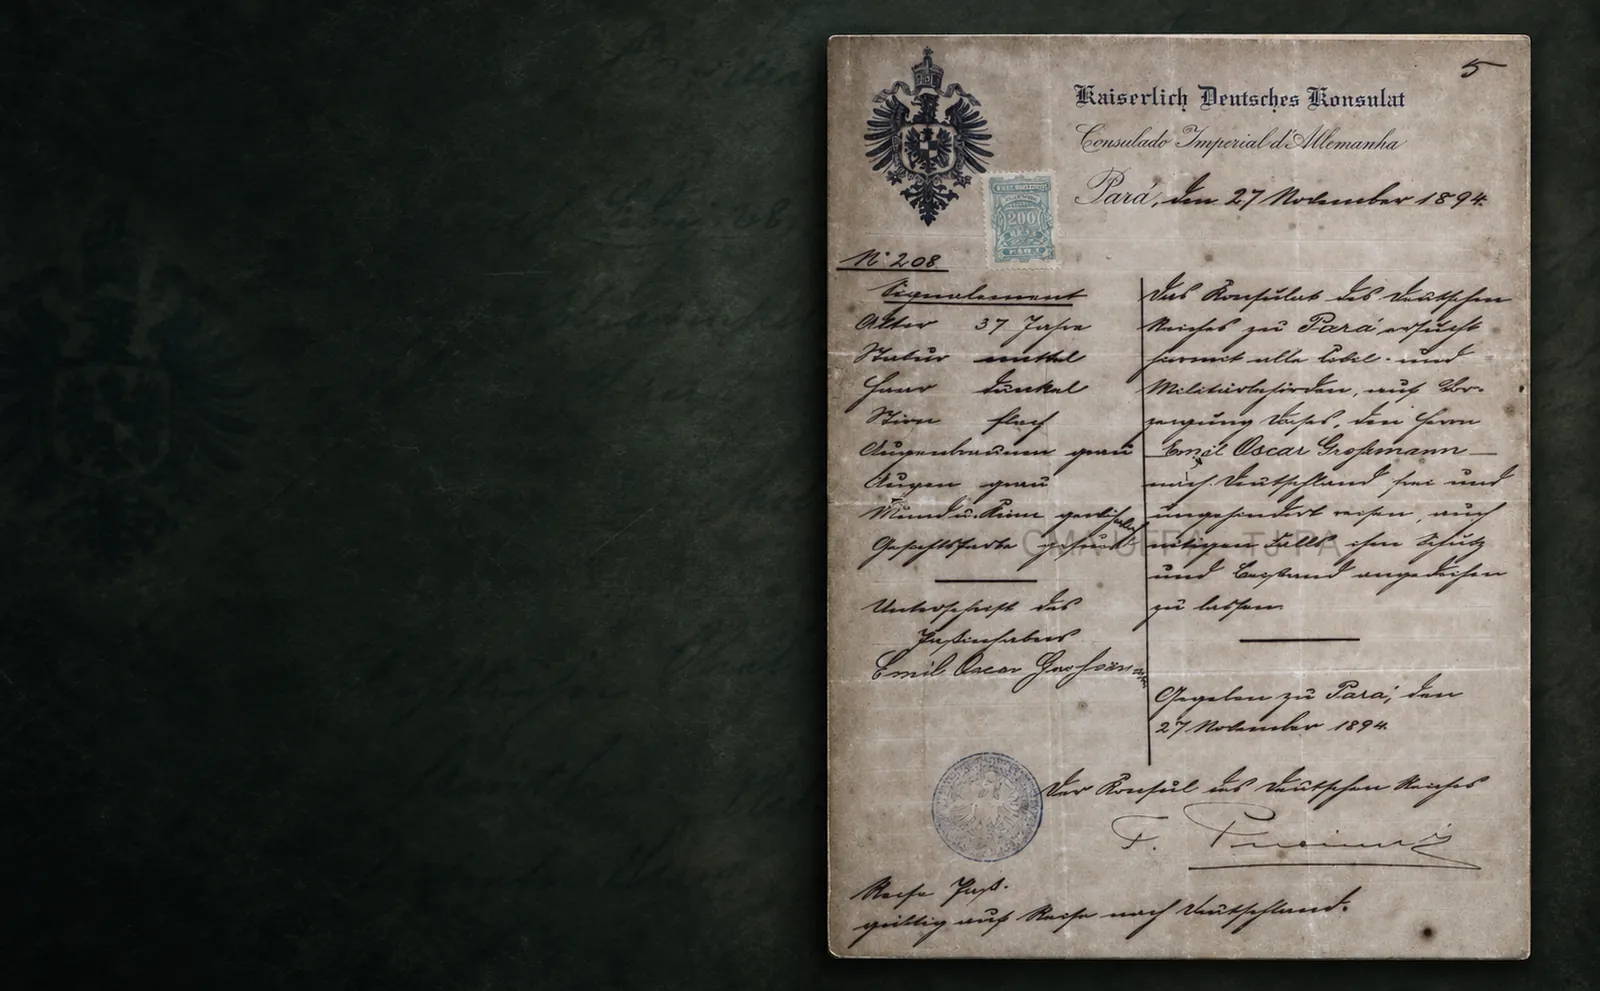 5
Kaiserlich Deutsches Konsulat
Consulado Imperial d'Allemanha
Pará, den 27 November 1894.
200
Nº 208
Signalement
Alter 37 Jahre
Statur mittel
Haar dunkel
Stirn flach
Augenbraunen grau
Augen grau
Mund u. Kinn gewöhnlich
Gesichtsfarbe gesund
Unterschrift des
Paßinhabers
Emil Oscar Großmann
Das Konsulat des Deutschen
Reiches zu Pará ersucht
hiermit alle Civil- und
Militärbehörden, auf Vor-
zeigung dieses, den Herrn
Emil Oscar Großmann
nach Deutschland frei und
ungehindert reisen, auch
nötigen Falls ihm Schutz
und Beistand angedeihen
zu lassen.
Gegeben zu Pará, den
27 November 1894.
Der Konsul des Deutschen Reiches
F.
Reise Paß.
gültig auf Reise nach Deutschland.